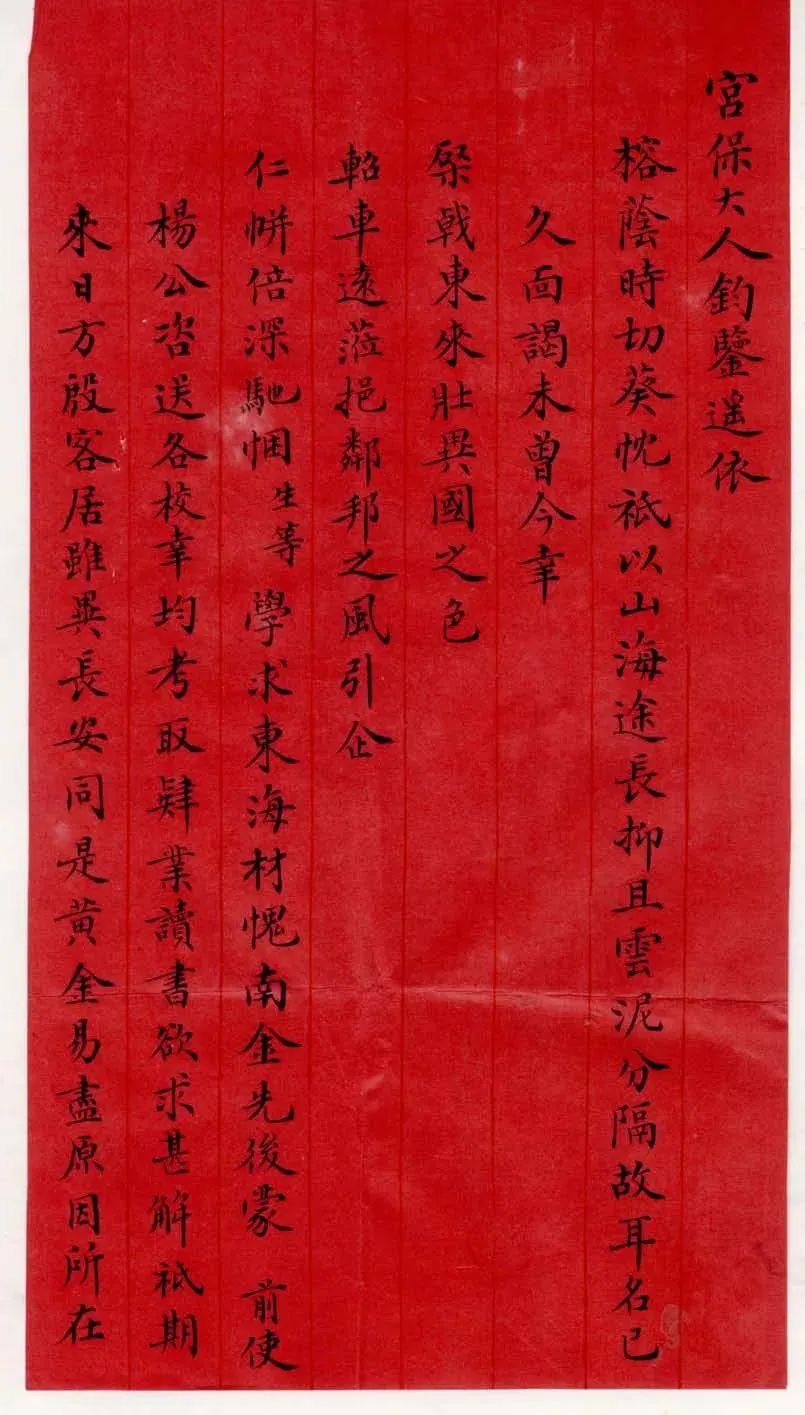 宮保大人鈞鑒遥依
榕蔭時切葵忱祇以山海途長抑且雲泥分隔故耳名已
久面謁未曾今幸
棨戟東來壯異國之色
軺車遠涖挹鄰邦之風引企
仁帡倍深馳悃生等學求東海材愧南金先後蒙前使
楊公咨送各校幸均考取肄業讀書欲求甚解祇期
來日方殷客居雖異長安同是黄金易盡原因所在